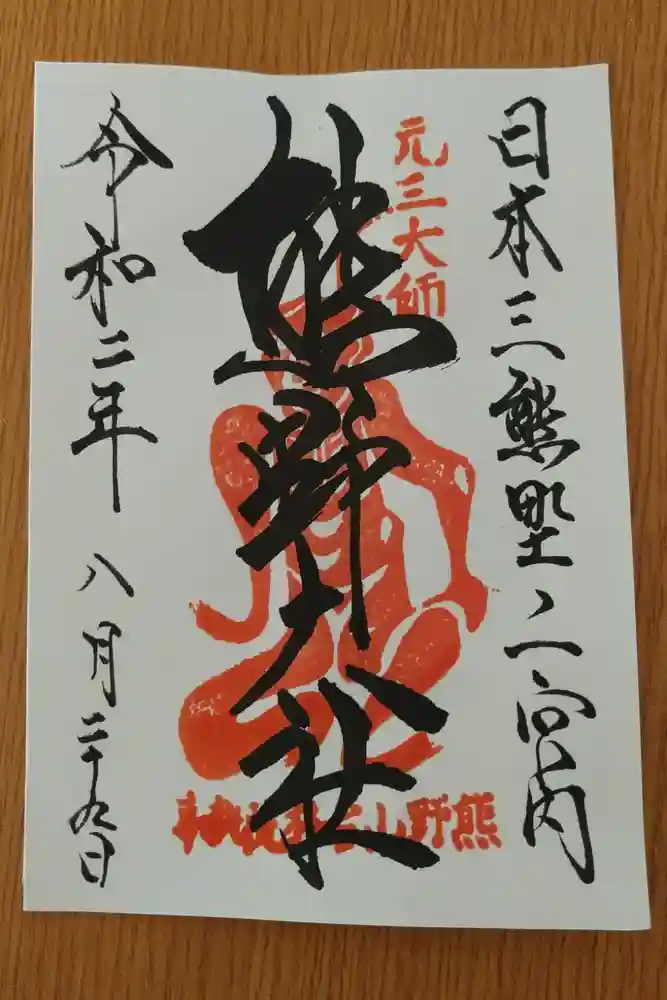 日本三熊野ノ一宮内
元三大師
熊野大社
令和二年八月二十九日
熊野山